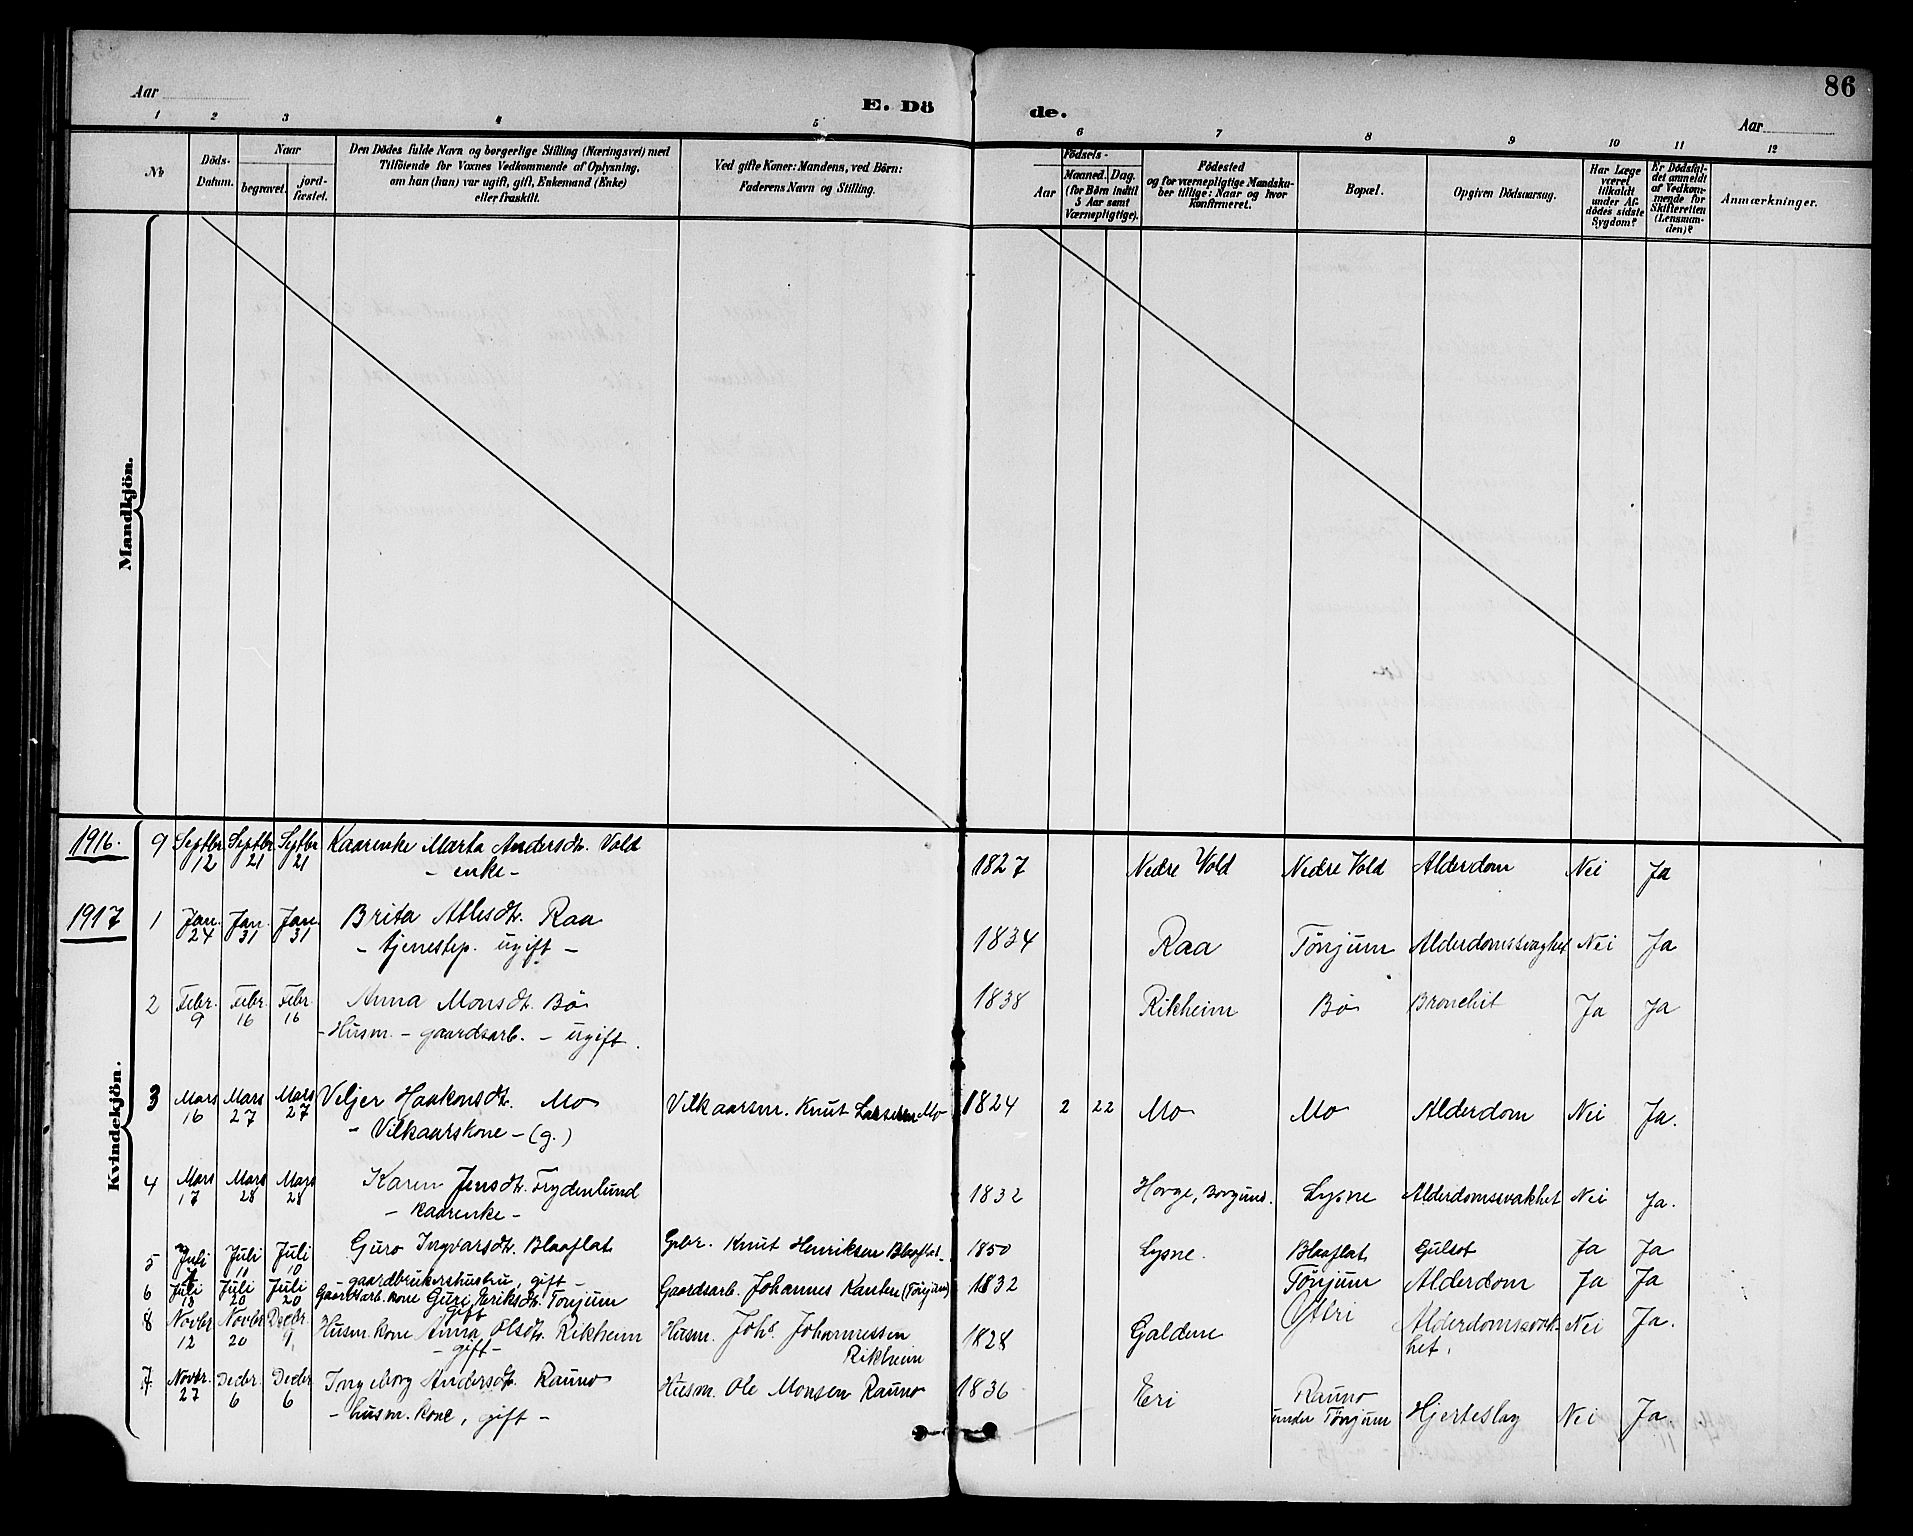 86
Aar
E. Dö
de.
Aar
1 2 3 4 5 6 7 8 9 10 11 12
No
Döds-
Datum.
Naar
begravet.
jord-
fæstet.
Den Dödes fulde Navn og borgerlige Stilling (Næringsvei) med
Tilföiende for Voxnes Vedkommende af Oplysning,
om han (hun) var ugift, gift, Enkemand (Enke)
eller fraskilt.
Ved gifte Koner: Mandens, ved Börn:
Faderens Navn og Stilling.
Födsels-
Aar
Maaned.
Dag.
(for Börn indtil
5 Aar samt
Værnepligtige).
Födested
og for værnepligtige Mandska-
ber tillige: Naar og hvor
Konfirmeret.
Bopæl.
Opgiven Dödsaarsag.
Har Læge
været
tilkaldt
under Af-
dödes sidste
Sygdom?
Er Dödsfal-
det anmeldt
af Vedkom-
mende for
Skifteretten
(Lensman-
den)?
Anmærkninger.
Mandkjön.
Kvindekjön.
1916. 9 Septbr 12 Septbr 21 Septbr 21 Kaarenke Marta Andersdtr. Vold
- enke -
1827 Nedre Vold Nedre Vold Alderdom Nei Ja
1917 1 Jan. 24 Jan. 31 Jan. 31 Brita Atlesdtr. Raa
- tjenestep. ugift -
1834 Raa Tönjum Alderdomssvaghet Nei Ja
2 Febr. 9 Febr. 16 Febr. 16 Anna Monsdtr. Bö
- Husm. - gaardsarb. - ugift.
1838 Rikheim Bö Bronchit Ja Ja
3 Mars 16 Mars 27 Mars 27 Veljer Haakonsdtr. Mo
- Vilkaarskone - (g.)
Vilkaarsm. Knut Larsen Mo 1824 2 22 Mo Mo Alderdom Nei Ja.
4 Mars 17 Mars 28 Mars 28 Karen Jensdtr. Frydenlund
- kaarenke -
1832 Horge, Borgund. Lysne Alderdomssvakhet Nei Ja.
5 Juli Juli 11 Juli 10 Guro Ingvarsdtr. Blaaflat
- gaardbrukershustru, gift -
Gbr. Knut Henriksen Blaaflat 1850 Lysne. Blaaflat Gulsot Ja Ja
6 Juli 13 Juli 20 Juli 20 Gaardsarb. kone Guri Eriksdtr. Tönjum
gift
Gaardsarb. Johannes Karlsen (Tönjum) 1832 Tönjum Alderdom Ja Ja
8 Novbr 12 Novbr 20 Decbr. 9 Husm. kone Anna Olsdtr. Rikheim
- gift -
Husm. Johs. Johannessen
Rikheim
1828 Galdene Ofteri Alderdomssvak-
het. Nei Ja.
7 Novbr. 27 Decbr. 6 Decbr 6 Ingeborg Andersdtr. Rauno
- husm. kone, gift -
Husm. Ole Monsen Rauno 1836 Eri Rauno
under Tönjum Hjerteslag Nei Ja